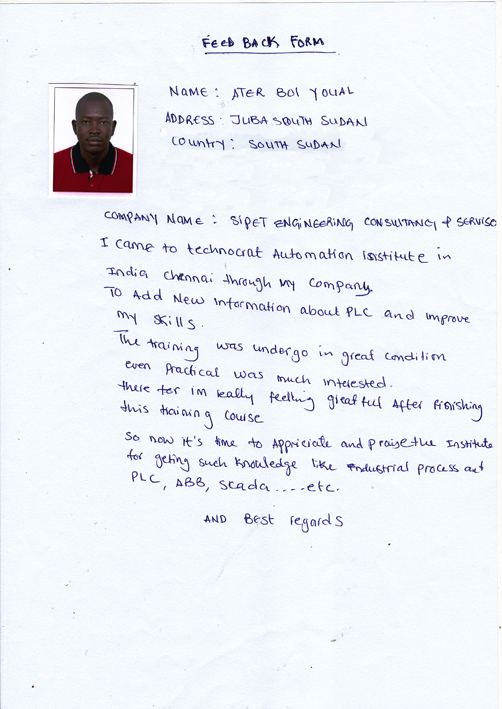 FEED BACK FORM
NAME: ATER BOI YOUAL
ADDRESS: JUBA SOUTH SUDAN
Country: SOUTH SUDAN
COMPANY NAME: SIPET ENGINEERING CONSULTANCY & SERVISE
I came to technocrat Automation Institute in
India chennai through my company
TO Add New Information about PLC and improve
my skills.
The training was undergo in great condition
even practical was much interested.
there for im really feelling greatful After Finishing
this training course
So now it's time to Appriciate and praise the Institute
for geting such knowledge like industrial process and
PLC, ABB, Scada ....etc.
AND Best regards